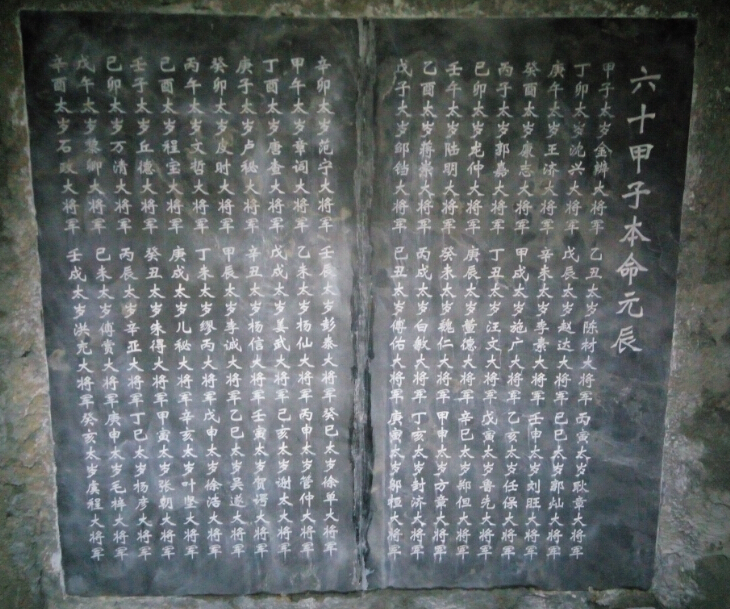 六十甲子本命元辰
甲子太岁金辨大将军 乙丑太岁陈材大将军 丙寅太岁耿章大将军
丁卯太岁沈兴大将军 戊辰太岁赵达大将军 己巳太岁郭灿大将军
庚午太岁王济大将军 辛未太岁李素大将军 壬申太岁刘旺大将军
癸酉太岁康志大将军 甲戌太岁施广大将军 乙亥太岁任保大将军
丙子太岁郭嘉大将军 丁丑太岁汪文大将军 戊寅太岁鲁先大将军
己卯太岁龙仲大将军 庚辰太岁董德大将军 辛巳太岁郑但大将军
壬午太岁陆明大将军 癸未太岁魏仁大将军 甲申太岁方章大将军
乙酉太岁蒋崇大将军 丙戌太岁白敏大将军 丁亥太岁封济大将军
戊子太岁邹铛大将军 己丑太岁傅佑大将军 庚寅太岁邬桓大将军
辛卯太岁范宁大将军 壬辰太岁彭泰大将军 癸巳太岁徐单大将军
甲午太岁章词大将军 乙未太岁杨仙大将军 丙申太岁管仲大将军
丁酉太岁唐查大将军 戊戌太岁姜武大将军 己亥太岁谢太大将军
庚子太岁卢秘大将军 辛丑太岁杨信大将军 壬寅太岁贺谔大将军
癸卯太岁皮时大将军 甲辰太岁李诚大将军 乙巳太岁吴遂大将军
丙午太岁文哲大将军 丁未太岁缪丙大将军 戊申太岁徐浩大将军
己酉太岁程宝大将军 庚戌太岁儿秘大将军 辛亥太岁叶坚大将军
壬子太岁丘德大将军 癸丑太岁朱得大将军 甲寅太岁张朝大将军
己卯太岁万清大将军 丙辰太岁辛亚大将军 丁巳太岁杨彦大将军
戊午太岁黎卿大将军 己未太岁傅赏大将军 庚申太岁毛梓大将军
辛酉太岁石政大将军 壬戌太岁洪充大将军 癸亥太岁虞程大将军